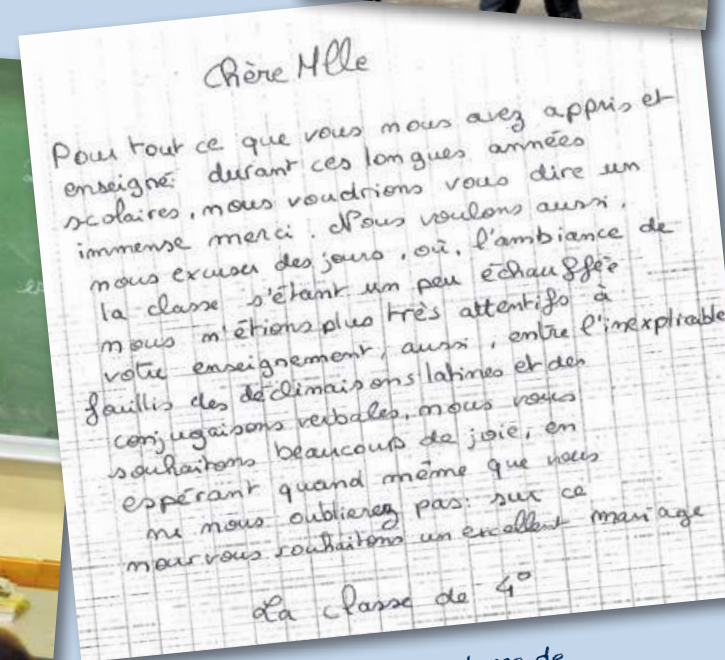 Chère Mlle
Pour tout ce que vous nous avez appris et
enseigné durant ces longues années
scolaires, nous voudrions vous dire un
immense merci. Nous voulons aussi,
nous excuser des jours, où, l'ambiance de
la classe s'étant un peu échauffée
nous n'étions plus très attentifs à
votre enseignement, aussi, entre l'inexplicable
fouillis des déclinaisons latines et des
conjugaisons verbales, nous vous
souhaitons beaucoup de joie, en
espérant quand même que vous
ne nous oublierez pas. sur ce
nous vous souhaitons un excellent mariage
La classe de 4°
de